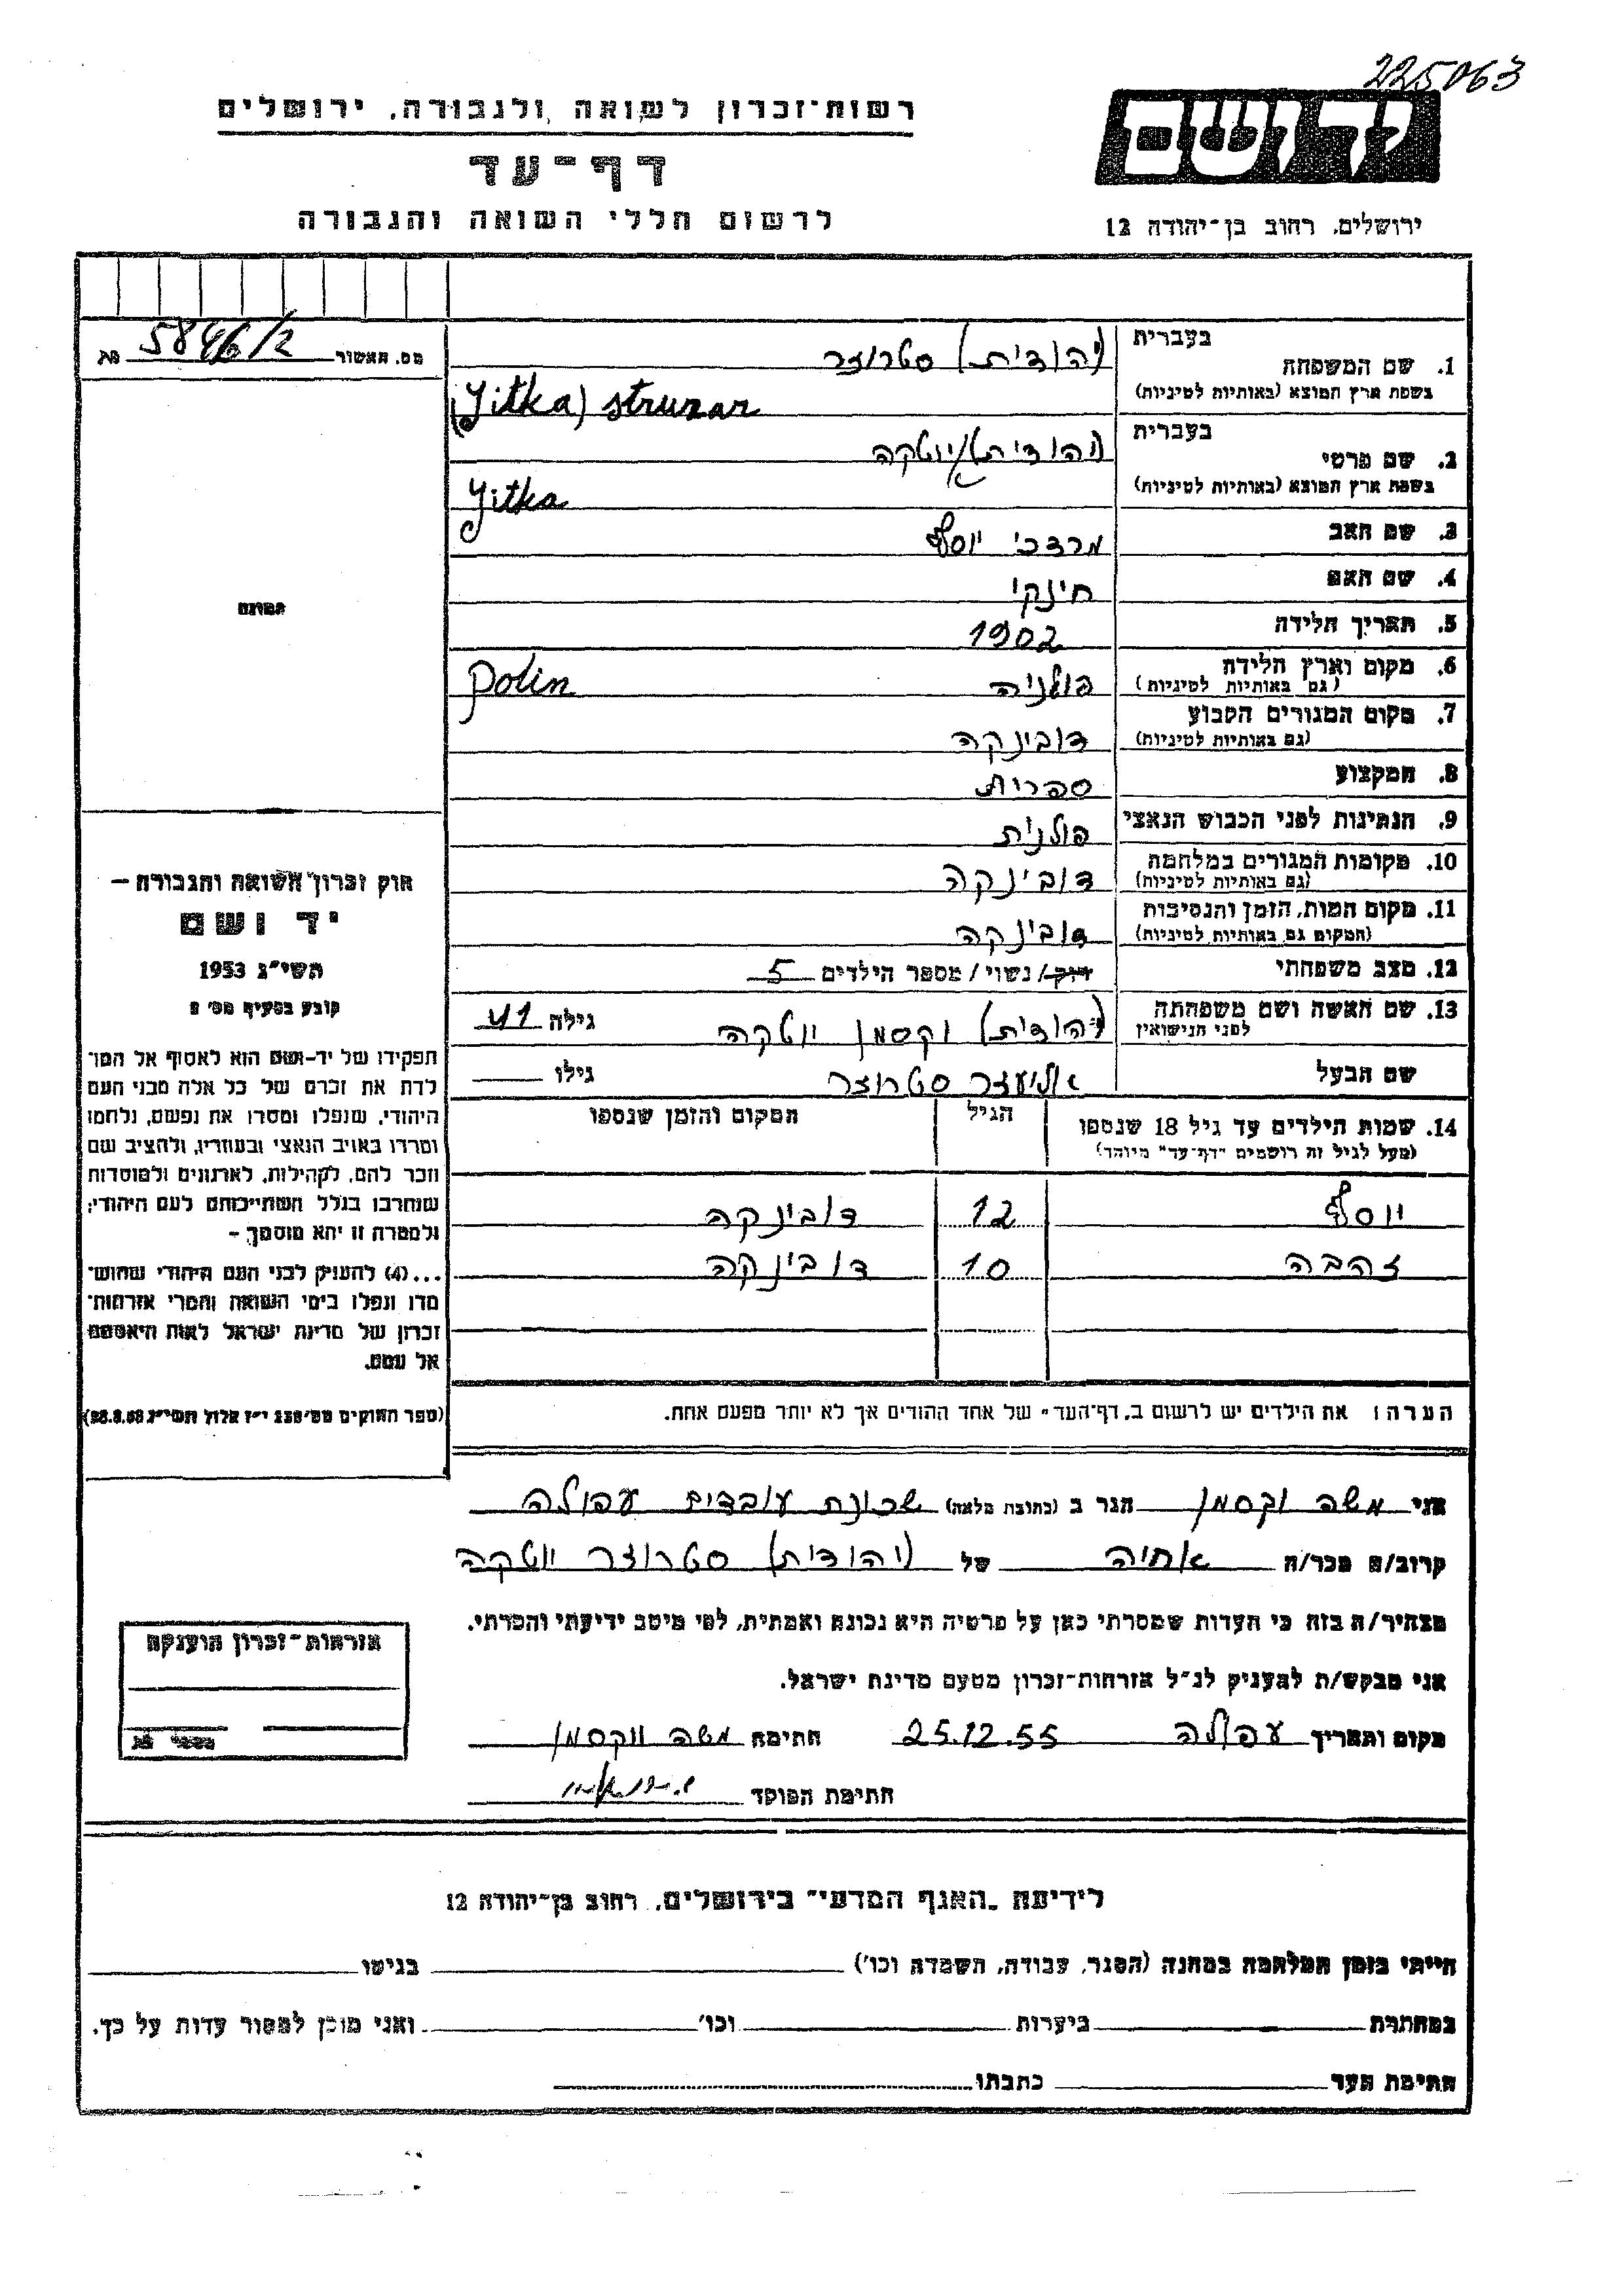 225063
ידושם
רשות־זכרון לשואה ולגבורה, ירושלים
דף־עד
לרשום חללי השואה והגבורה
ירושלים, רחוב בן־יהודה 12
מס. האשור 5846/2
בעברית (יהודית) סטרוזר
1. שם המשפחה
בשפת ארץ המוצא (באותיות לטיניות) (Yitka) struzar
בעברית (יהודית) יוטקה
2. שם פרטי
בשפת ארץ המוצא (באותיות לטיניות) Yitka
3. שם האב מרדכי יוסף
4. שם האם חינקי
5. תאריך הלידה 1902
6. מקום וארץ הלידה פולניה Polin
(גם באותיות לטיניות)
7. מקום המגורים הקבוע דובינקה
(גם באותיות לטיניות)
8. המקצוע ספרית
9. הנתינות לפני הכבוש הנאצי פולנית
10. מקומות המגורים במלחמה דובינקה
(גם באותיות לטיניות)
11. מקום המות, הזמן והנסיבות דובינקה
(המקום גם באותיות לטיניות)
12. מצב משפחתי רוק/ נשוי/ מספר הילדים 5
13. שם האשה ושם משפחתה (יהודית) וקסמן יוטקה גילה 41
לפני הנישואין
שם הבעל אליעזר סטרוזר גילו
14. שמות הילדים עד גיל 18 שנספו הגיל המקום והזמן שנספו
(מעל לגיל זה רושמים "דף־עד" מיוחד)
יוסף 12 דובינקה
זהבה 10 דובינקה
הערה: את הילדים יש לרשום ב"דף־העד" של אחד ההורים אך לא יותר מפעם אחת.
התמונה
חוק זכרון השואה והגבורה –
יד ושם
תשי"ג 1953
קובע בסעיף מס' 2
תפקידו של יד־ושם הוא לאסוף אל המו־
לדת את זכרם של כל אלה מבני העם
היהודי, שנפלו ומסרו את נפשם, נלחמו
ומרדו באויב הנאצי ובעוזריו, ולהציב שם
וזכר להם, לקהילות, לארגונים ולמוסדות
שנחרבו בגלל השתייכותם לעם היהודי;
ולמטרה זו יהא מוסמך –
...(4) להעניק לבני העם היהודי שהוש־
מדו ונפלו בימי השואה והמרי אזרחות־
זכרון של מדינת ישראל לאות היאספם
אל עמם.
(ספר החוקים מס' 132 י"ז אלול תשי"ג 28.8.53)
אני משה וקסמן הגר ב (כתובת מלאה) שכונת עובדים עפולה
קרוב/ה מכר/ה אחיה של (יהודית) סטרוזר יוטקה
מצהיר/ה בזה כי העדות שמסרתי כאן על פרטיה היא נכונה ואמתית, לפי מיטב ידיעתי והכרתי.
אני מבקש/ת להעניק לנ"ל אזרחות־זכרון מטעם מדינת ישראל.
מקום ותאריך עפולה 25.12.55 חתימה משה ווקסמן
חתימת הפוקד
אזרחות־זכרון הוענקה
לידיעת "האגף המדעי" בירושלים, רחוב בן־יהודה 12
הייתי בזמן המלחמה במחנה (הסגר, עבודה, השמדה וכו') בגיטו
במחתרת ביערות וכו' ואני מוכן למסור עדות על כך.
חתימת העד כתבתו